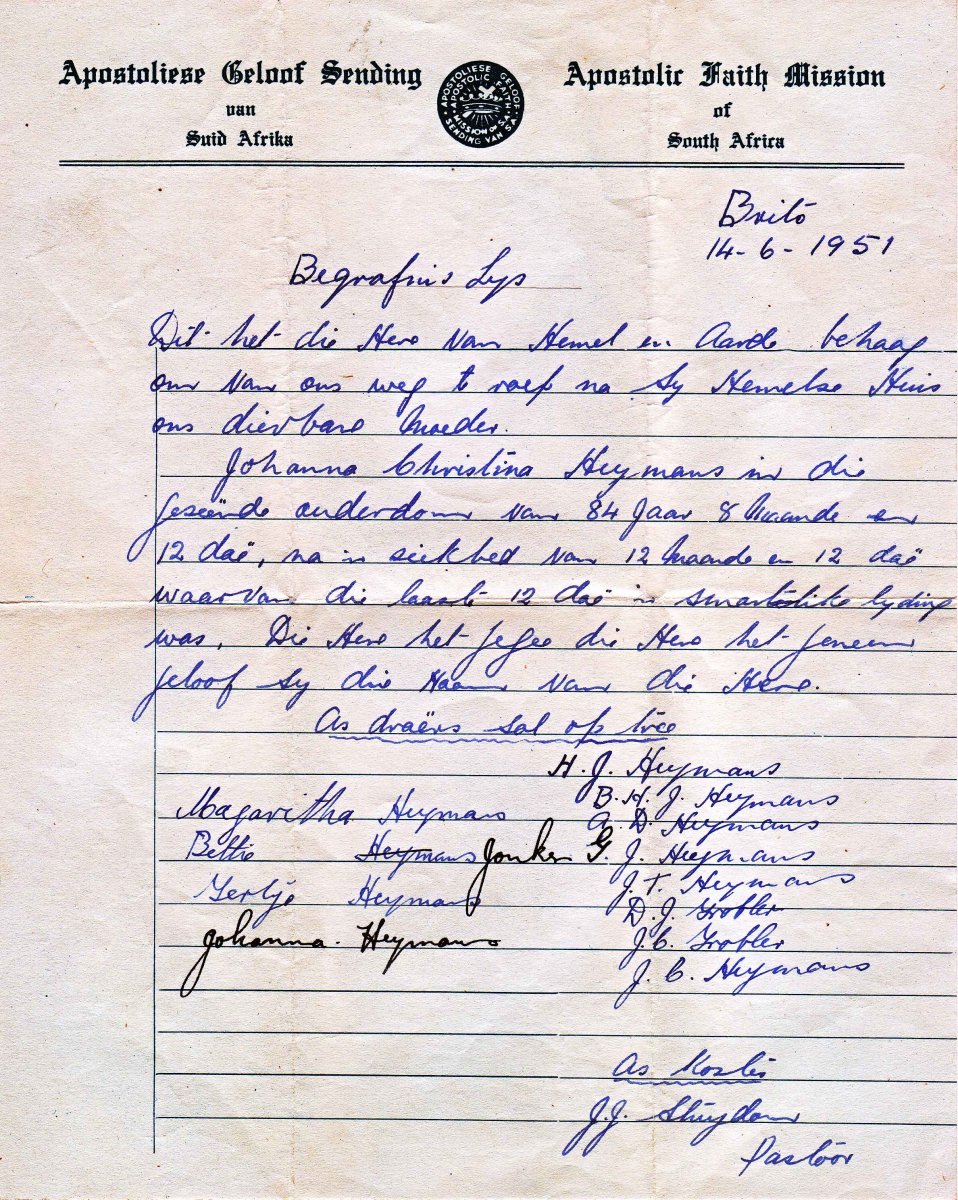 Apostoliese Geloof Sending
van
Suid Afrika
APOSTOLIESE GELOOF
SENDING VAN S.A.
APOSTOLIC FAITH
MISSION OF S.A.
Apostolic Faith Mission
of
South Africa
Brits
14-6-1951
Begrafnis Lys
Dit het die Here van Hemel en Aarde behaag
om van ons weg te roep na Sy Hemelse Huis
ons dierbare Moeder.
Johanna Christina Heymans in die
geseënde ouderdom van 84 Jaar 8 Maande en
12 daë, na 'n siekbed van 12 Maande en 12 daë
waarvan die laaste 12 daë 'n smartelike lyding
was. Die Here het gegee die Here het geneem
geloof sy die Naam van die Here.
As draërs sal op tree
H. J. Heymans
B. H. J. Heymans
A. D. Heymans
G. J. Heymans
J. T. Heymans
D. J. Grobler
J. C. Grobler
J. C. Heymans
Magaritha Heymans
Bettie Heymans Jonker
Gertjo Heymans
Johanna. Heymans
As Koster
J.J. Struydom
Pastoor